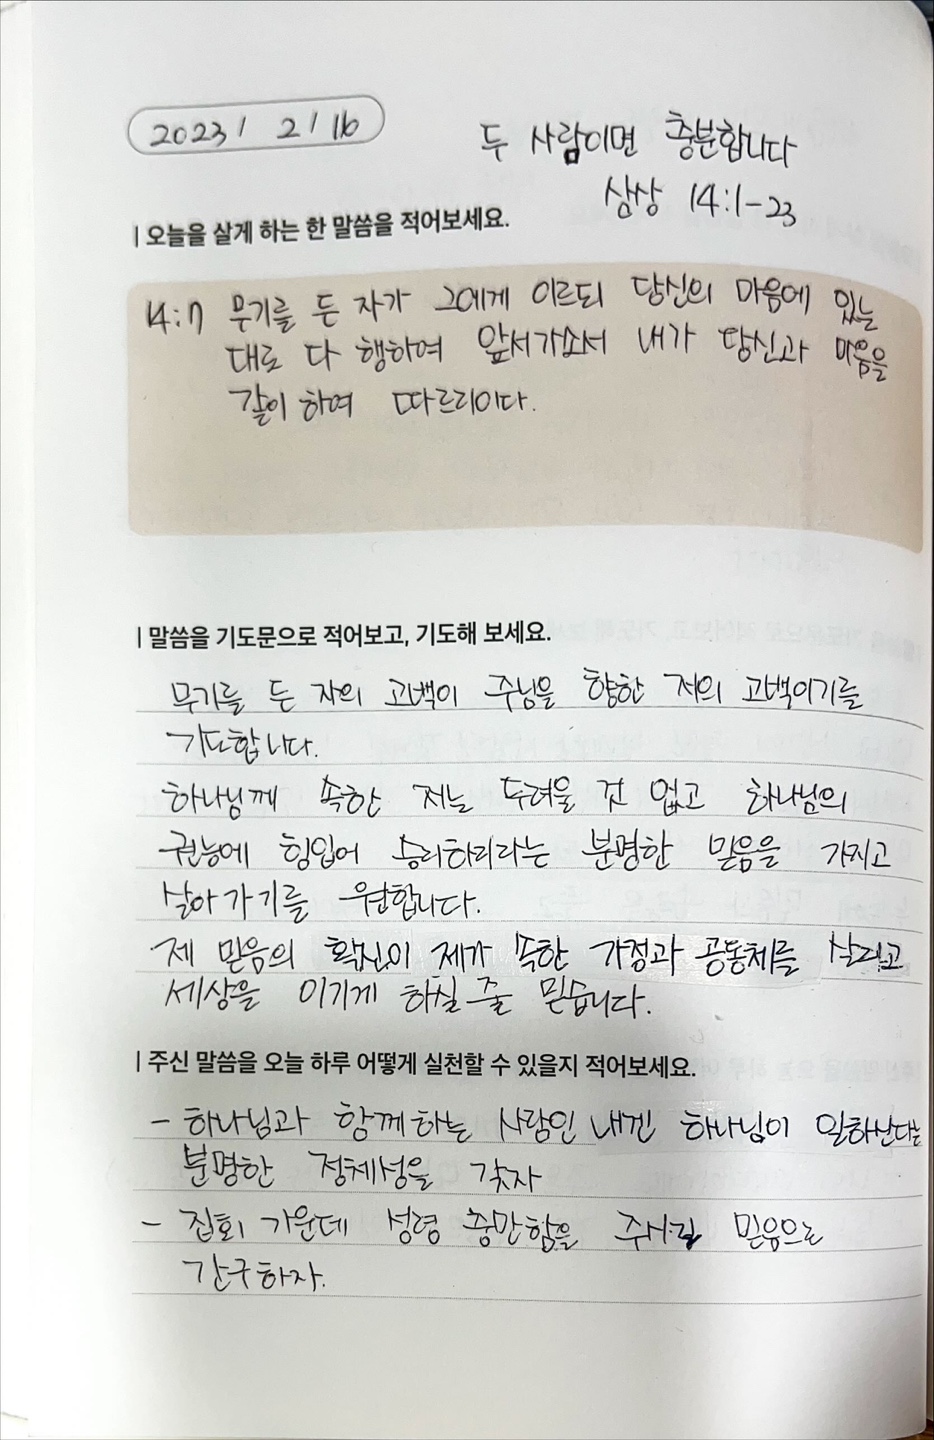 2023 / 2 / 16
두 사람이면 충분합니다
삼상 14:1-23
| 오늘을 살게 하는 한 말씀을 적어보세요.
14:7 무기를 든 자가 그에게 이르되 당신의 마음에 있는
대로 다 행하여 앞서가소서 내가 당신과 마음을
같이 하여 따르리이다.
| 말씀을 기도문으로 적어보고, 기도해 보세요.
무기를 든 자의 고백이 주님을 향한 저의 고백이기를
기도합니다.
하나님께 속한 저는 두려울 것 없고 하나님의
권능에 힘입어 승리하리라는 분명한 믿음을 가지고
살아가기를 원합니다.
제 믿음의 확신이 제가 속한 가정과 공동체를 살리고
세상을 이기게 하실 줄 믿습니다.
| 주신 말씀을 오늘 하루 어떻게 실천할 수 있을지 적어보세요.
- 하나님과 함께하는 사람인 내겐 하나님이 일하신다는
분명한 정체성을 갖자
- 집회 가운데 성령 충만함을 주시길 믿음으로
간구하자.